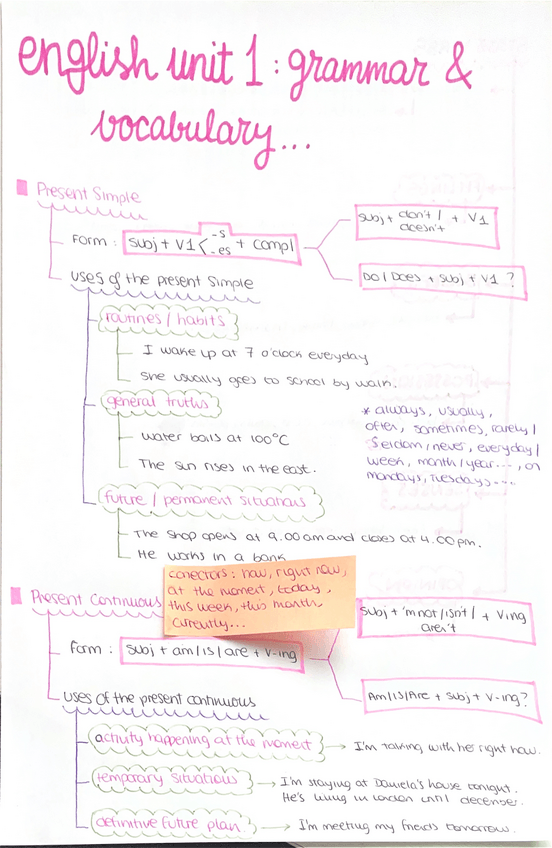 english unit 1: grammar &
vocabulary...
Present Simple
Form: subj + V1 < -s -es + compl
subj + don't / doesn't + V1
DO / DOES + subj + V1 ?
uses of the present simple
routines / habits
I wake up at 7 o'clock everyday
She usually goes to school by walk.
general truths
Water boils at 100°C
The sun rises in the east.
* always, usually,
often, sometimes, rarely /
seldom, never, everyday /
week, month / year..., on
mondays, tuesdays...
future / permanent situations
The shop opens at 9.00 am and closes at 4.00 pm.
He works in a bank
conectors: now, right now,
at the moment, today,
this week, this month,
currently...
Present Continuous
Form: subj + am / is / are + V-ing
subj + 'm not / isn't / aren't + Ving
Am / Is / Are + subj + V-ing?
uses of the present continuous
activity happening at the moment → I'm talking with her right now.
temporary situations → I'm staying at Daniela's house tonight.
He's living in london until december.
definitive future plan → I'm meeting my friends tomorrow.